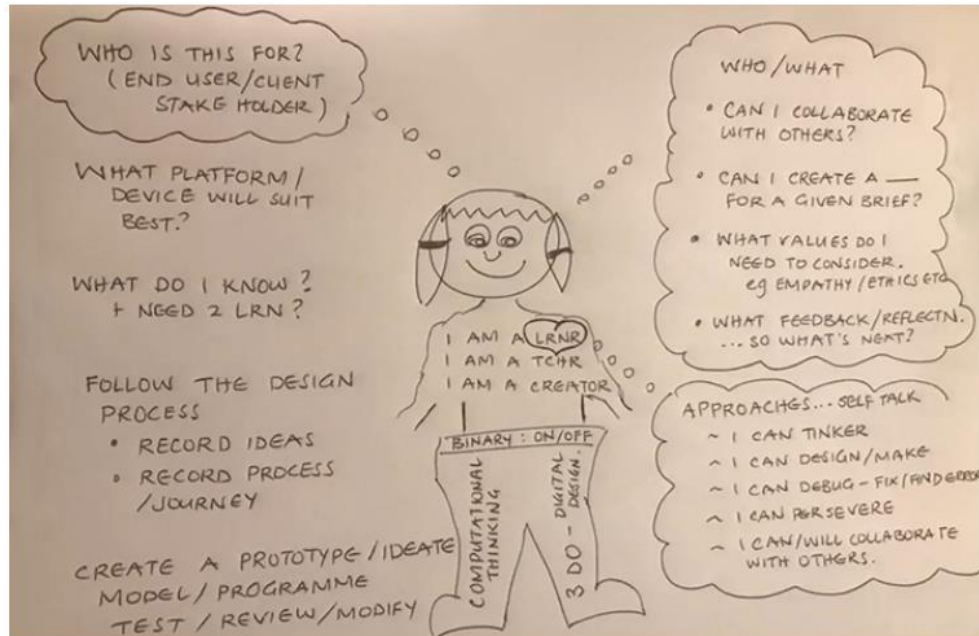 WHO IS THIS FOR?
(END USER/CLIENT
STAKE HOLDER)
WHAT PLATFORM/
DEVICE WILL SUIT
BEST?
WHAT DO I KNOW?
+ NEED 2 LRN?
FOLLOW THE DESIGN
PROCESS
• RECORD IDEAS
• RECORD PROCESS
/JOURNEY
CREATE A PROTOTYPE/IDEATE
MODEL/PROGRAMME
TEST / REVIEW/MODIFY
I AM A LRNR
I AM A TCHR
I AM A CREATOR
BINARY: ON/OFF
COMPUTATIONAL
THINKING
3 DO - DIGITAL
DESIGN.
WHO/WHAT
• CAN I COLLABORATE
WITH OTHERS?
• CAN I CREATE A —
FOR A GIVEN BRIEF?
• WHAT VALUES DO I
NEED TO CONSIDER.
eg EMPATHY/ETHICS ETC
• WHAT FEEDBACK/REFLECTN.
... SO WHAT'S NEXT?
APPROACHES... SELF TALK
~ I CAN TINKER
~ I CAN DESIGN/MAKE
~ I CAN DEBUG - FIX/FIND ERROR
~ I CAN PERSEVERE
~ I CAN/WILL COLLABORATE
WITH OTHERS.